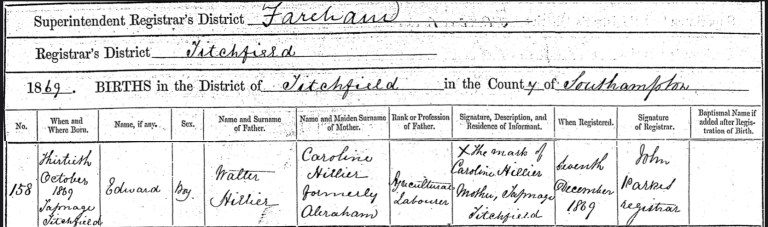 Superintendent Registrar's District Fareham
Registrar's District Titchfield
1869. BIRTHS in the District of Titchfield in the County of Southampton
No.
When and
Where Born.
Name, if any.
Sex.
Name and Surname
of Father.
Name and Maiden Surname
of Mother.
Rank or Profession
of Father.
Signature, Description, and
Residence of Informant.
When Registered.
Signature
of Registrar.
Baptismal Name if
added after Regis-
tration of Birth.
158
Thirtieth
October
1869
Tapnage
Titchfield
Edward
Boy
Walter
Hillier
Caroline
Hillier
formerly
Abraham
Agricultural
Labourer
X the mark of
Caroline Hillier
Mother, Tapnage
Titchfield
Seventh
December
1869
John
Parkes
registrar